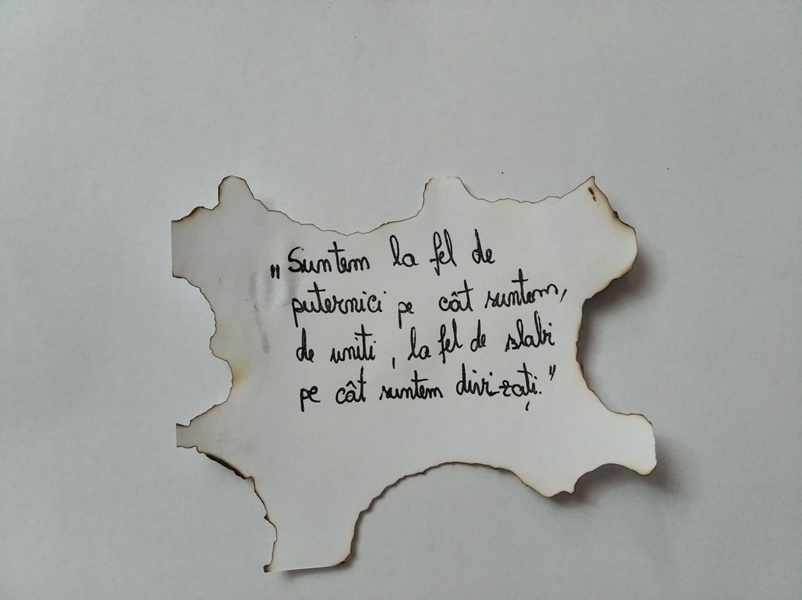 „Suntem la fel de
puternici pe cât suntem,
de uniti, la fel de slabi
pe cât suntem divizați."